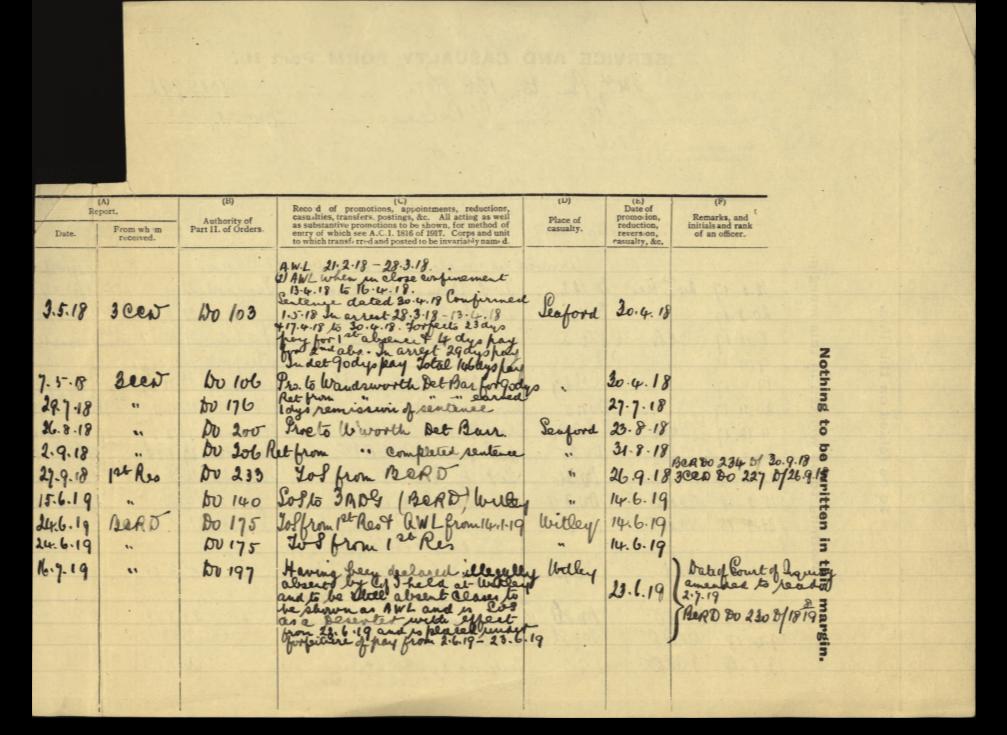 (A)
Report.
Date.
From whom received.
(B)
Authority of
Part II. of Orders.
(C)
Record of promotions, appointments, reductions,
casualties, transfers, postings, &c. All acting as well
as substantive promotions to be shown, for method of
entry of which see A.C.I. 1816 of 1917. Corps and unit
to which transferred and posted to be invariably named.
(D)
Place of
casualty.
(E)
Date of
promotion,
reduction,
reversion,
casualty, &c.
(F)
Remarks, and
initials and rank
of an officer.
A.W.L 21.2.18 – 28.3.18.
(2) AWL when in close confinement
13.4.18 to 16.4.18.
Sentence dated 30.4.18 Confirmed
3.5.18 3CCD DO 103 1.5.18 In arrest 28.3.18 – 13.4.18 Seaford 30.4.18
& 17.4.18 to 30.4.18. Forfeits 23 days
pay for 1st absence & 4 dys pay
for 2nd abs. In arrest 29 dys pay
In det 90 dys pay Total 146 dys pay
7.5.18 3CCD DO 106 Pro. to Wandsworth Det Bar for 90 dys " 30.4.18
29.7.18 " DO 176 Ret from " " " earned 27.7.18
1 dys remission of sentence
26.8.18 " DO 200 Proc to W'worth Det Barr. Seaford 23-8-18
2.9.18 " DO 206 Ret from " completed sentence " 31-8-18
27.9.18 1st Res DO 233 ToS from BCRD " 26.9.18 BCRD DO 234 D/ 30.9.18
3CCD DO 227 D/26.9.18
15.6.19 " DO 140 SoS to 3ADG (BCRD) Witley " 14.6.19
24.6.19 BCRD DO 175 ToS from 1st Res & AWL from 14.1.19 Witley 14.6.19
24.6.19 " DO 175 ToS from 1st Res " 14.6.19
16.7.19 " DO 197 Having been declared illegally Witley 23.6.19
absent by C of I held at Witley
and to be still absent ceases to
be shown as AWL and is SoS
as a Deserter with effect
from 23.6.19 and is placed under
forfeiture of pay from 2.6.19 – 23.6.19
Date of Court of Inquiry
amended to read
2.7.19
BCRD DO 230 D/18 8 19
Nothing to be written in this margin.